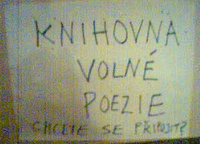 KNIHOVNA
VOLNÉ
POEZIE
CHCETE SE PŘIPOJIT?